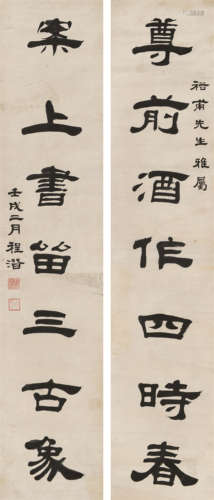 尊前酒作四時春
裕甫先生雅屬
案上書留三古象
壬戌二月程潛